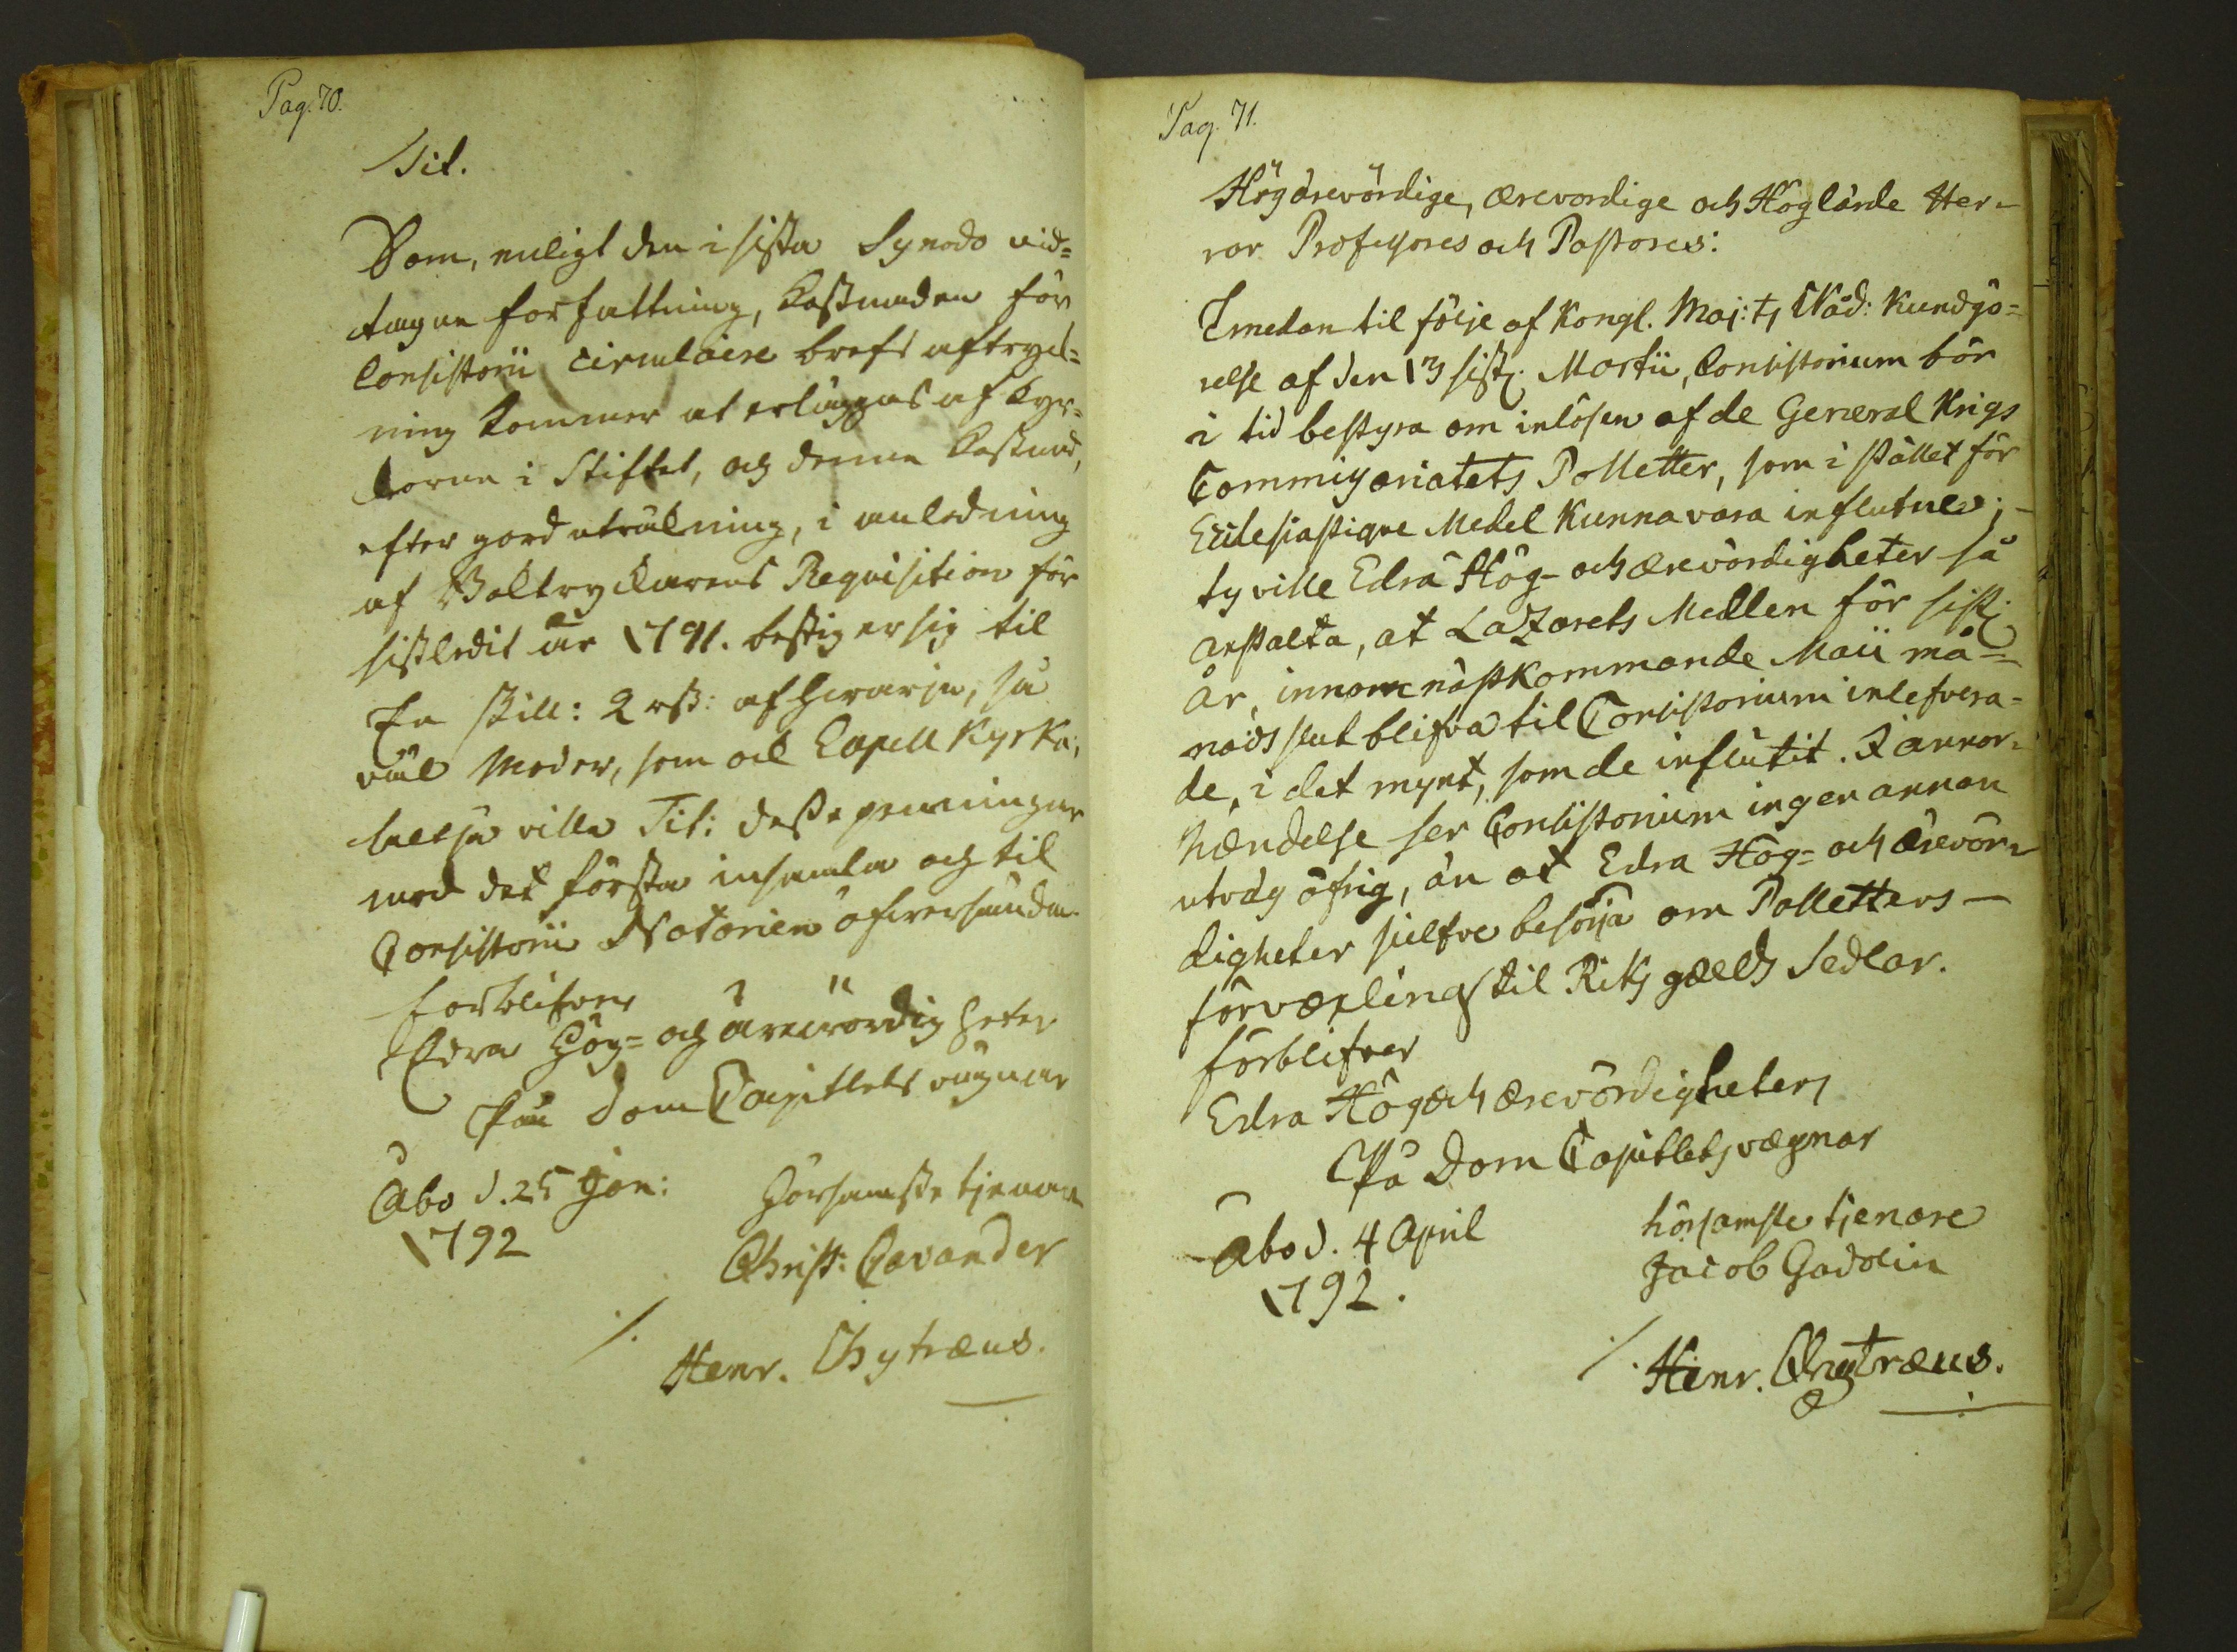 Pag. 70.
Tit.
Som, enligt den i sista Synodo vid=
tagne författning, kostnaden för
Consistorii circulaire brefs aftryck=
ning kommer at erläggas af Kyr=
korne i Stiftet, och denne kostnad,
efter gord uträkning, i anledning
af Boktryckarens Requisition för
sistledit år 1791. bestiger sig til
En skill: 2 rst: af hvarje, så
väl Moder, som ock Capell Kyrka;
altså ville Tit: desse penningar
med det första insamla och til
Consistorii Notarien öfversända.
förblifver
Edra Hög= och ärevördigheter
På Dom Capitlets vägnar
Åbo d. 25 Jan: hörsamste tjenare
1792 Christ: Cavander
/. Henr. Chytræus.
Pag. 71.
Högärevördige, ärevördige och Höglärde Her=
rar Professores och Pastores:
Emedan til följe af Kongl. Maj:ts Nåd: Kundgö=
relse af den 13 sistl. Martii, Consistorium bör
i tid bestyra om inlösen af de General Krigs
Commissariatets Polletter, som i stället för
Ecclesiastique Medel kunna vara influtne;
ty ville Edra Hög- och ärevördigheter så
anstalta, at Lazarets Medlen för sistl.
år, innom nästkommande Maii må=
nads slut blifva til Consistorium inlefvera=
de, i det mynt, som de influtit. I annor=
hændelse ser Consistorium ingen annan
utväg öfrig, än at Edra Hög= och ärevör=
digheter sielfve besörja om Polletters —
förvæxling til Riks gælds Sedlar.
förblifver
Edra Hög och ärevördigheters
På Dom Capitlets vægnar
Åbo d. 4 April hörsamste tjenare
1792. Jacob Gadolin
/. Henr. Chytræus.